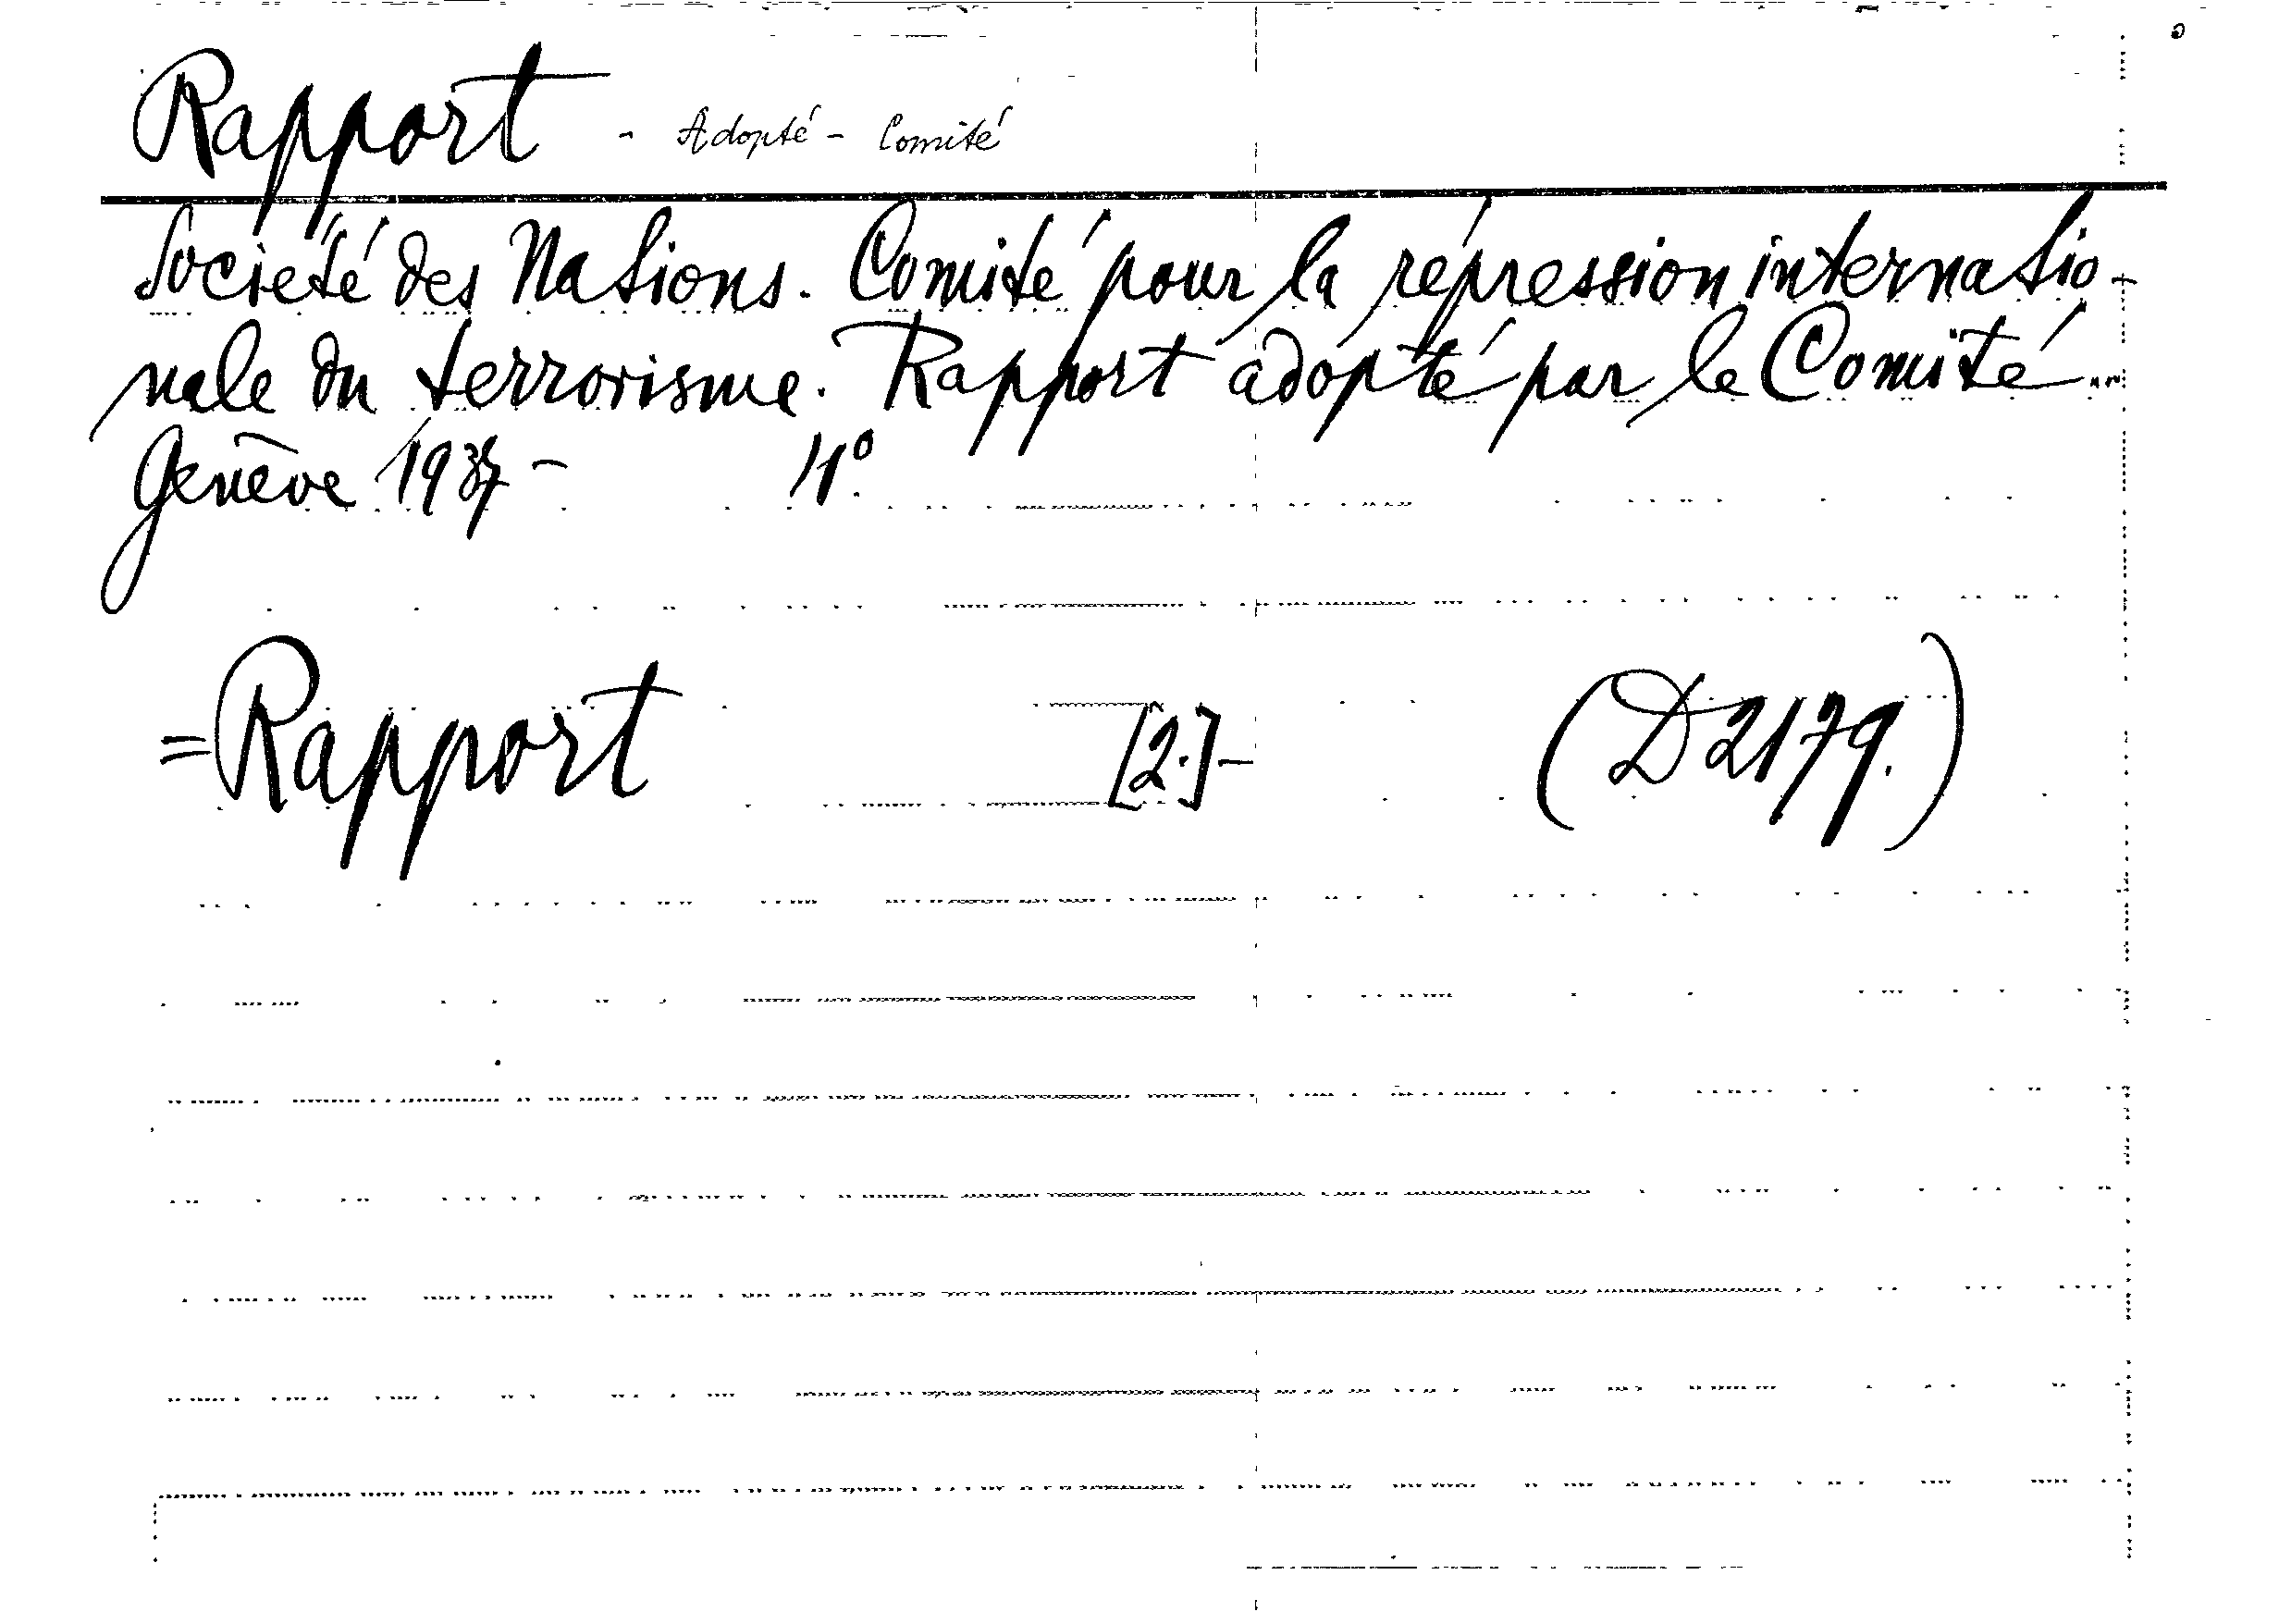 Rapport - Adopté - Comité
Societé des Nations. Comité pour la répression internatio-
nale du terrorisme. Rapport adopté par le Comité.
Genève 1937 - 4°.
= Rapport [2.] - (D 2179.)